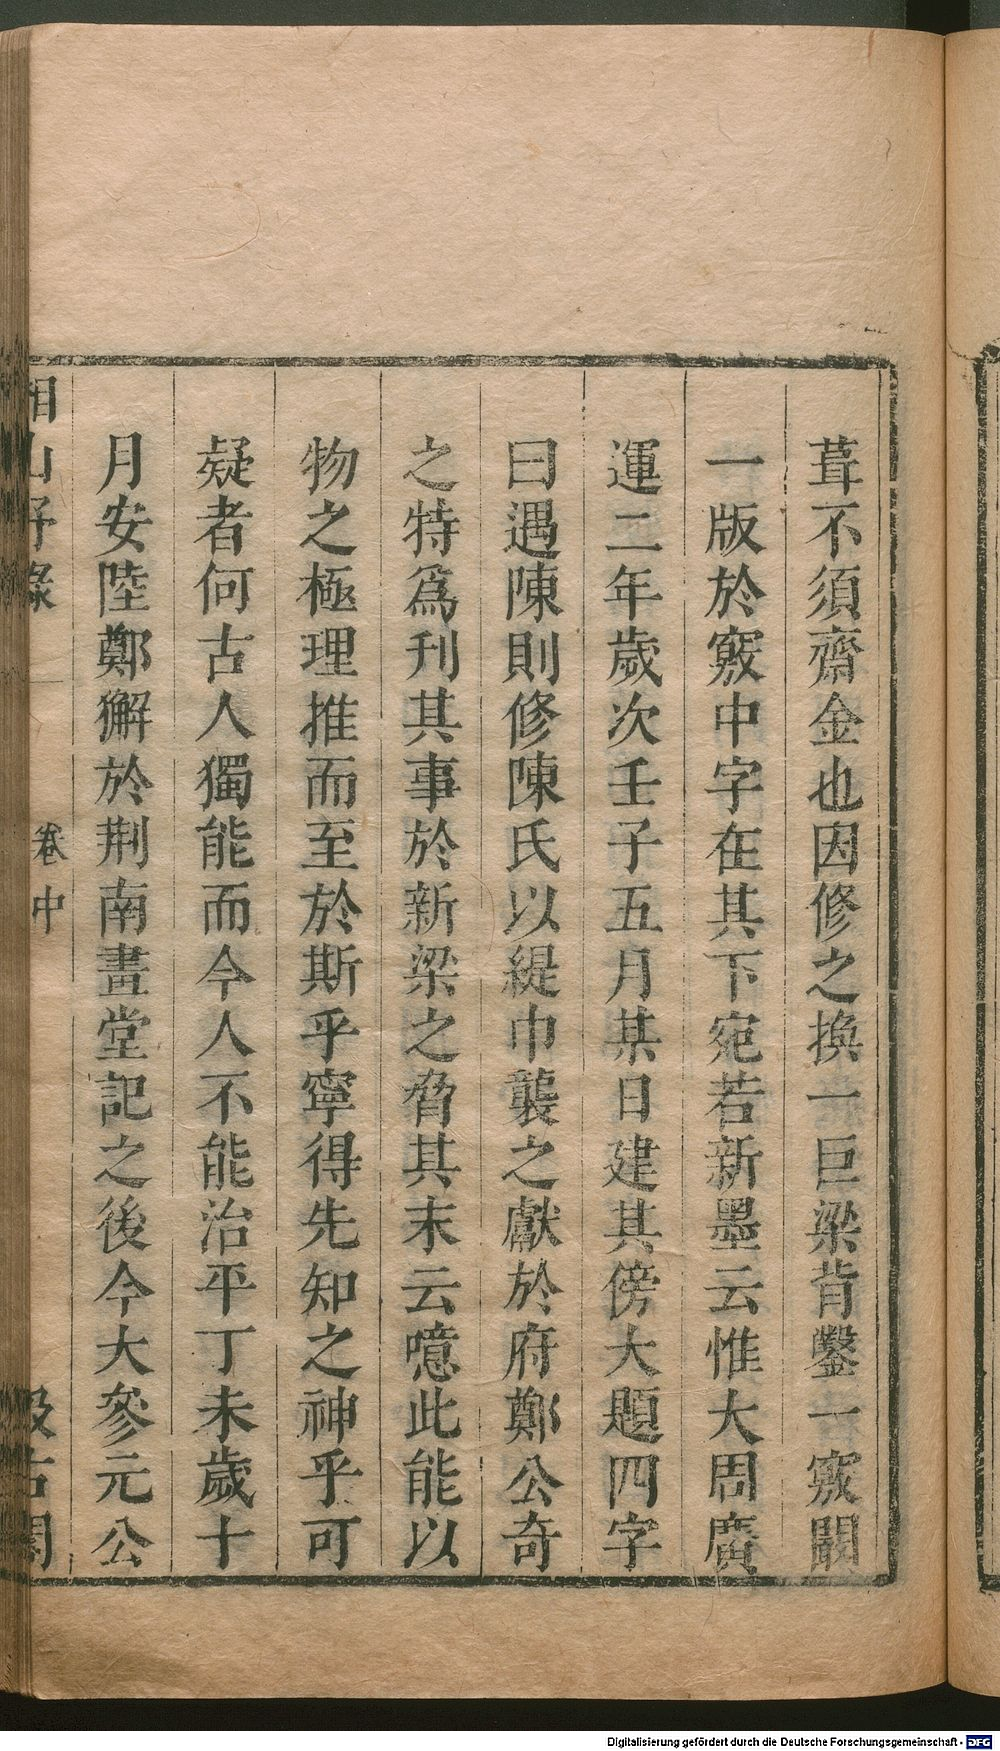 葺不須齋金也因修之換一巨梁背鑿一竅闢
一版於竅中字在其下宛若新墨云惟大周廣
運二年歲次壬子五月某日建其傍大題四字
曰遇陳則修陳氏以緹巾襲之獻於府鄭公奇
之特爲刋其事於新梁之脅其末云噫此能以
物之極理推而至於斯乎寧得先知之神乎可
疑者何古人獨能而今人不能治平丁未歲十
月安陸鄭獬於荆南畫堂記之後今大參元公
湘山野錄
卷中
汲古閣
Digitalisierung gefördert durch die Deutsche Forschungsgemeinschaft - DFG